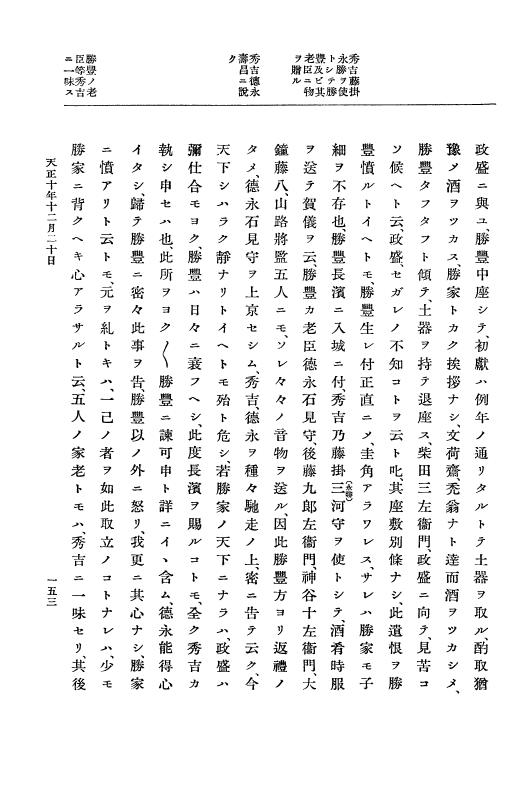 秀吉藤掛
永勝ヲ使
トシテ勝
豐及ビ其
老臣ニ物
ヲ贈ル
秀吉德永
壽昌ニ說
ク
勝豐ノ老
臣等秀吉
ニ一味ス
政盛ニ與ユ、勝豐中座シテ、初獻ハ例年ノ通リタルトテ土器ヲ取ル、酌取猶
豫メ酒ヲツカス、勝家トカク挨拶ナシ、文荷齋、禿翁ナト達而酒ヲツカシメ、
勝豐タフタフト傾テ、土器ヲ持テ退座ス、柴田三左衞門、政盛ニ向テ、見苦コ
ソ候ヘト云、政盛セガレノ不知コトヲ云ト叱、其座敷別條ナシ、此遺恨ヲ勝
豐憤ルトイヘトモ、勝豐生レ付正直ニメ、圭角アラワレス、サレハ勝家モ子
細ヲ不存也、勝豐長濱ニ入城ニ付、秀吉乃藤掛三河守ヲ使トシテ、酒肴時服
(永勝)
ヲ送テ賀儀ヲ云、勝豐カ老臣德永石見守、後藤九郎左衞門、神谷十左衞門、大
鐘藤八、山路將監五人ニモ、ソレ々々ノ音物ヲ送ル、因此勝豐方ヨリ返禮ノ
タメ、德永石見守ヲ上京セシム、秀吉、德永ヲ種々馳走ノ上、密ニ告テ云ク、今
天下シハラク靜ナリトイヘトモ殆ト危シ、若勝家ノ天下ニナラハ、政盛ハ
彌仕合モヨク、勝豐ハ日々ニ衰フヘシ、此度長濱ヲ賜ルコトモ、全ク秀吉カ
執シ申セハ也、此所ヲヨク〱勝豐ニ諫可申ト詳ニイヽ含ム、德永能得心
イタシ、歸テ勝豐ニ密々此事ヲ告、勝豐以ノ外ニ怒リ、我更ニ其心ナシ、勝家
ニ憤アリト云トモ、元ヲ糺トキハ、一己ノ者ヲ如此取立ノコトナレハ、少モ
勝家ニ背クヘキ心アラサルト云、五人ノ家老トモハ、秀吉ニ一味セリ、其後
天正十年十二月二十日
一五三